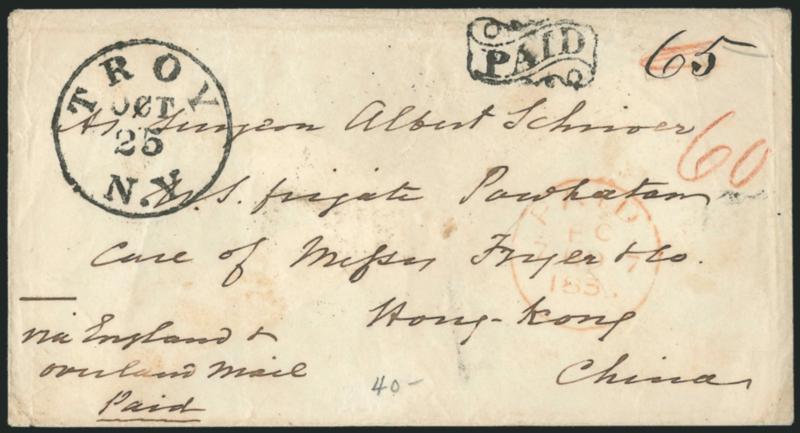 TROY
OCT
25
N.Y.
PAID
65
60
As. Surgeon Albert Schriver
U.S. frigate Powhatan
Care of Messrs Fryer & Co.
Hong-Kong
China
via England &
overland Mail
Paid
40-
PAID
185